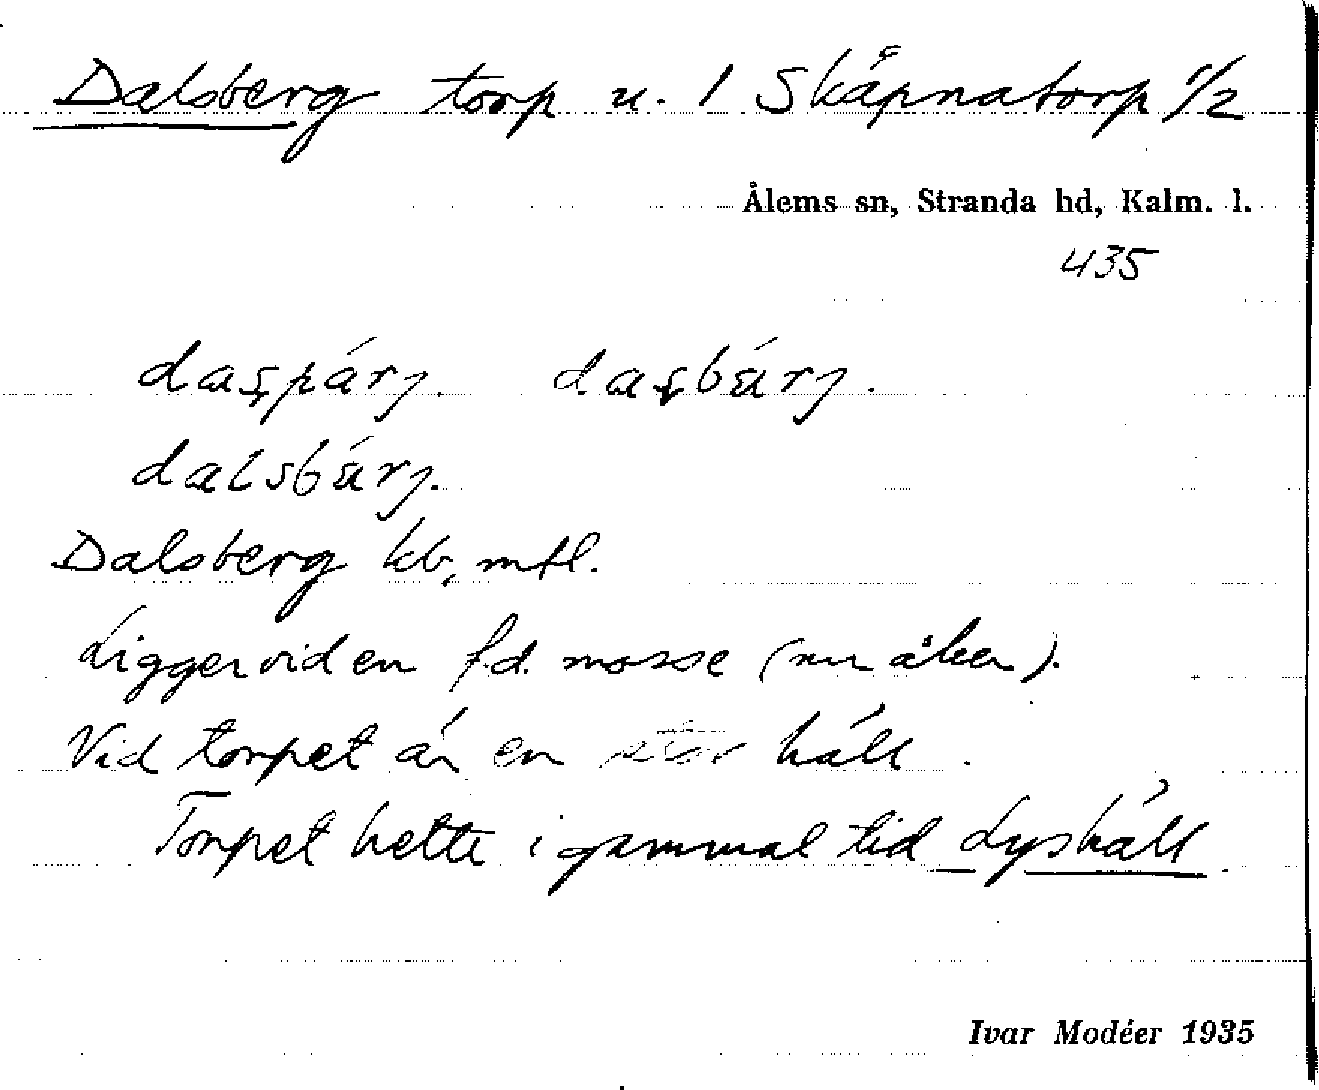 Dalsberg torp u. 1 Skåpnatorp 1/2
Ålems sn, Stranda hd, Kalm. l.
435
daşpárj. daşbárj.
dalsbárj.
Dalsberg kb, mtl.
Ligger vid en f.d. mosse (nu åker).
Vid torpet är en stor häll.
Torpet hette i gammal tid Lyshäll.
Ivar Modéer 1935